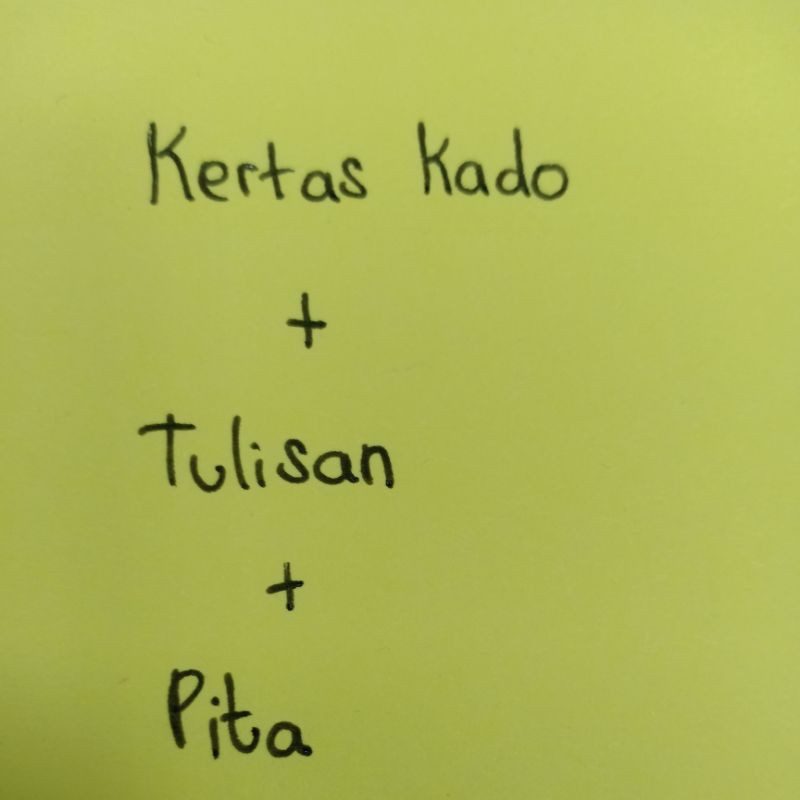 Kertas Kado
+
Tulisan
+
Pita